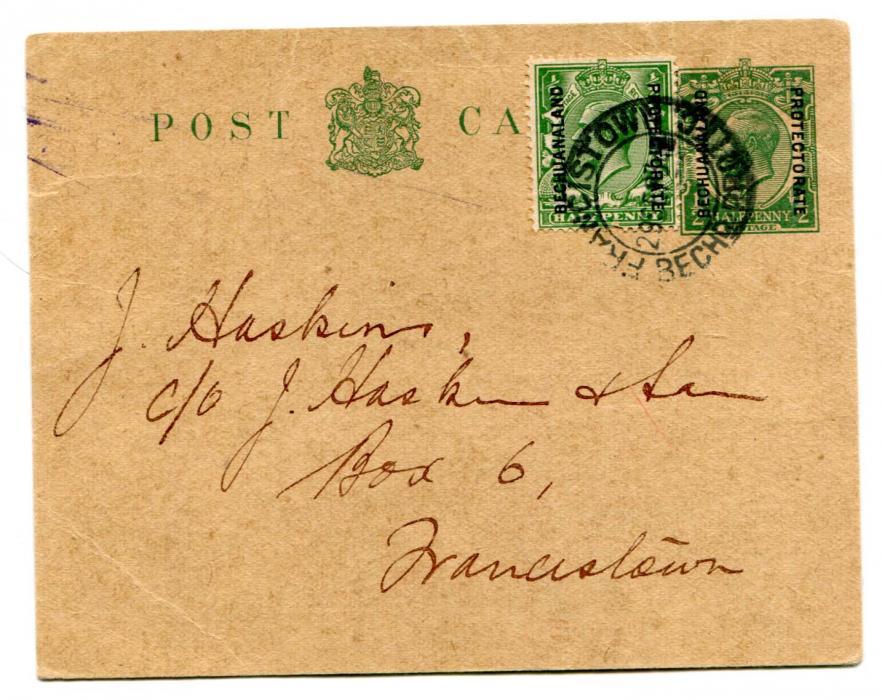 POST CA
BECHUANALAND PROTECTORATE
HALFPENNY
BECHUANALAND PROTECTORATE
HALFPENNY
POSTAGE
FRANCISTOWN
29
BECH
J. Haskins,
c/o J. Haskins & Son
Box 6,
Francistown